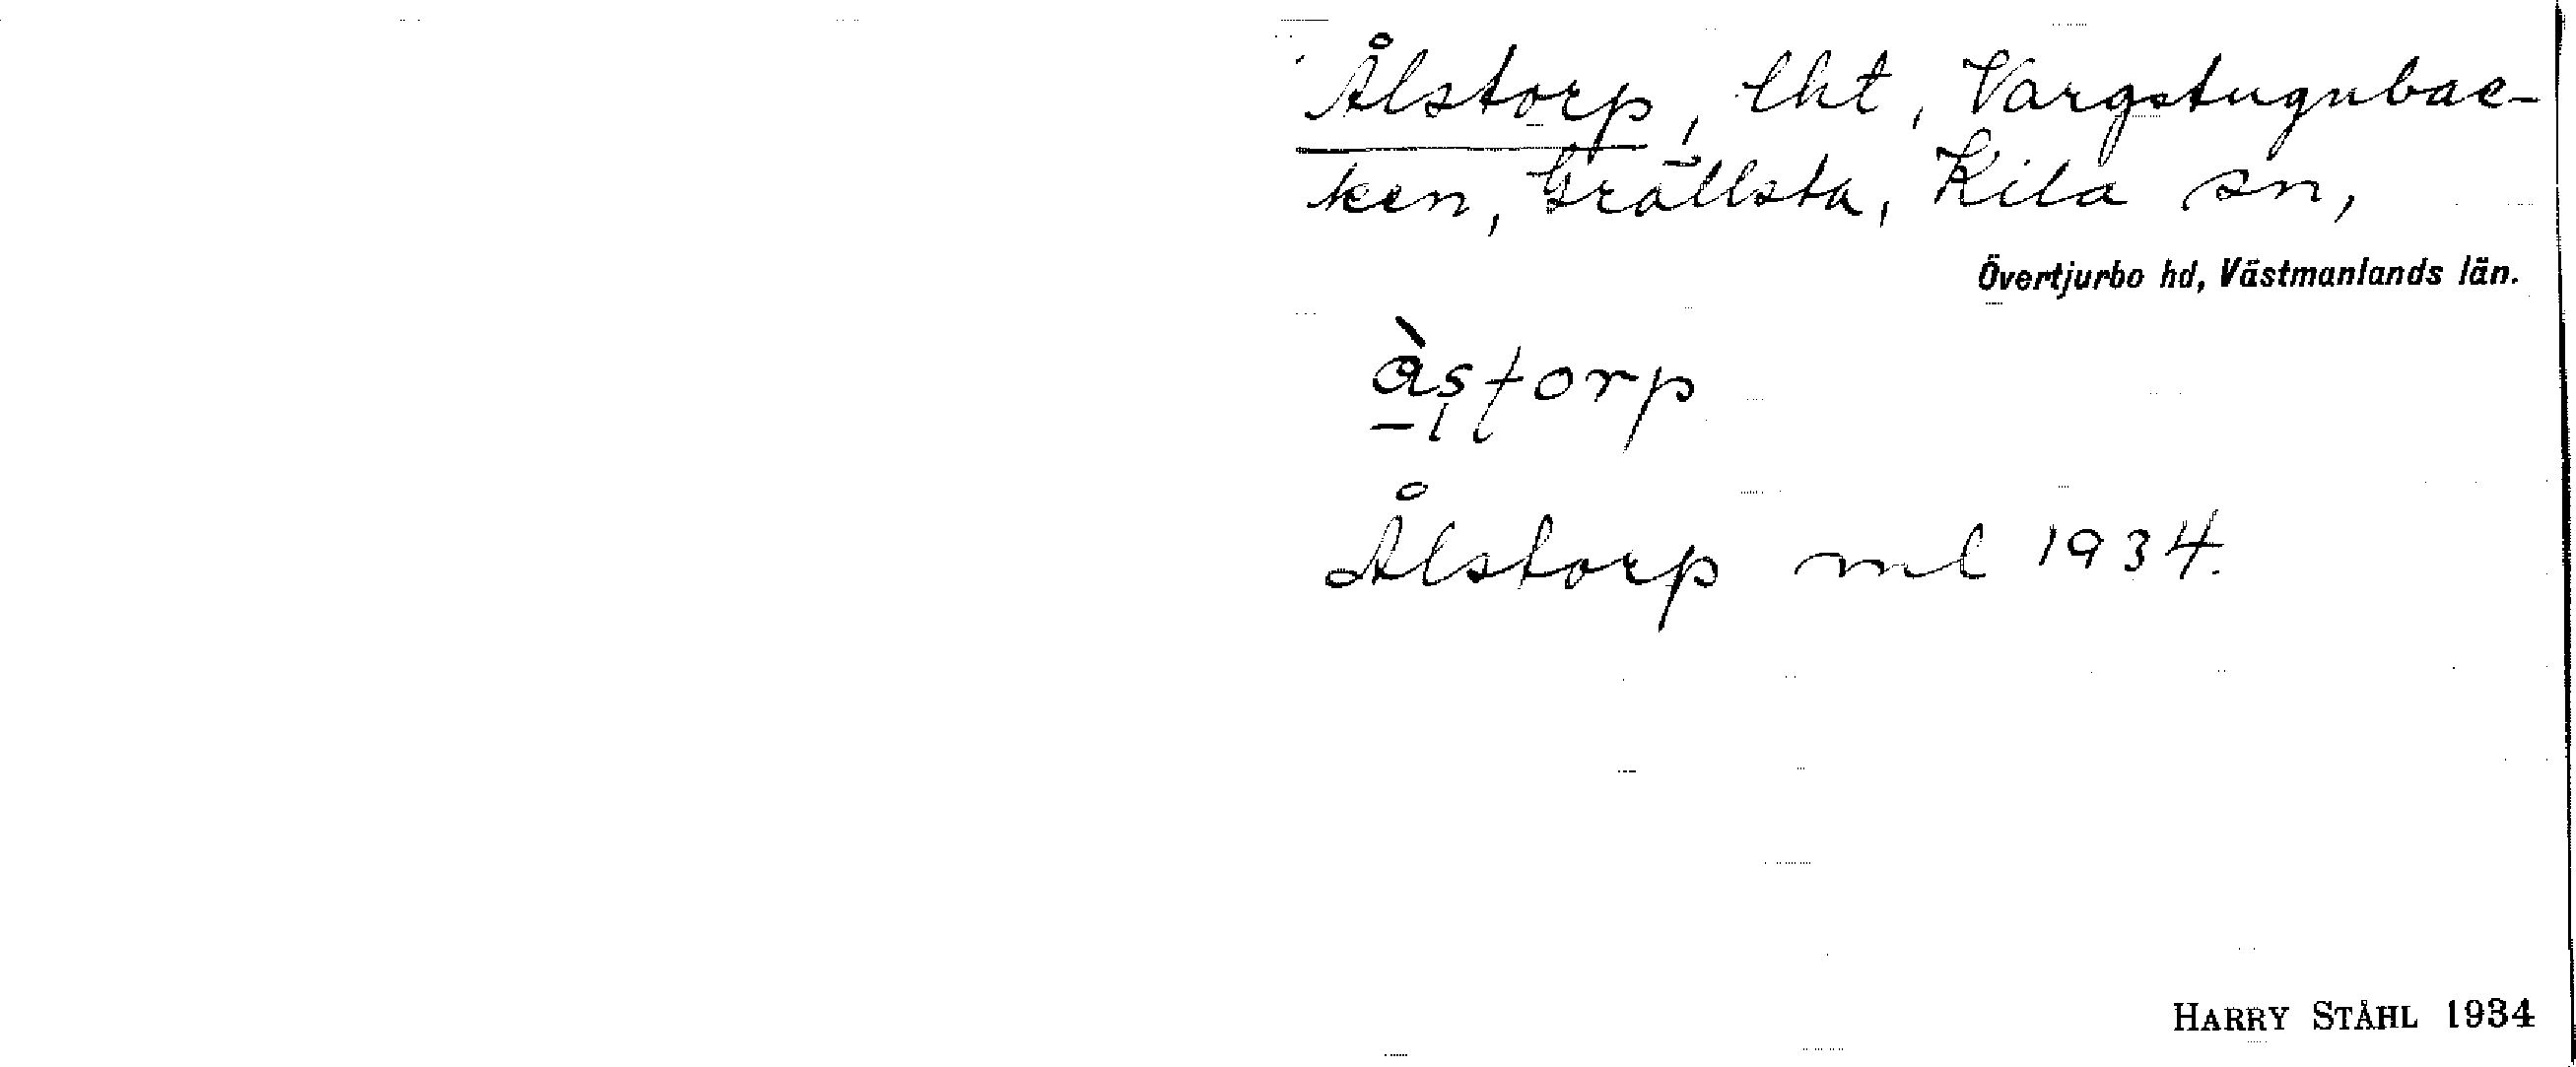 Ålstorp, lht, Vargstugubac-
ken, Grällsta, Kila sn,
Övertjurbo hd, Västmanlands län.
Ålstorp ml 1934.
HARRY STÅHL 1934